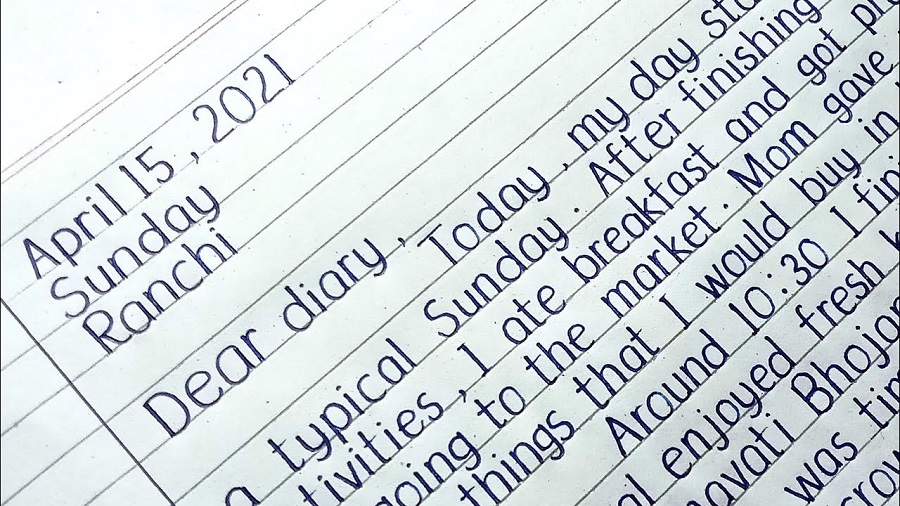 April 15, 2021
Sunday
Ranchi
Dear diary,
Today, my day
a typical Sunday. After finishing
I ate breakfast and got
to the market. Mom gave
things that I would buy in
Around 10:30 I
enjoyed fresh
was